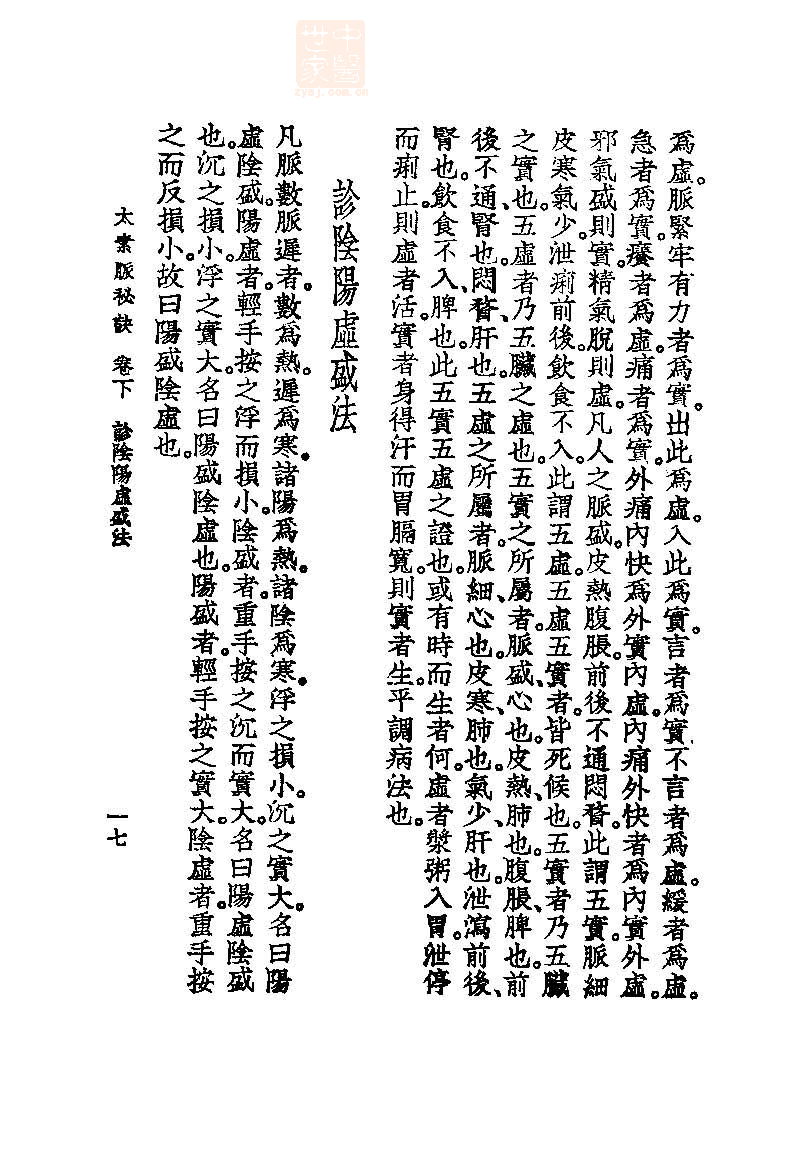 中醫世家
zysj.com.cn
爲虛。脈緊牢有力者爲實。出此爲虛。入此爲實。言者爲實、不言者爲虛。緩者爲虛。
急者爲實。癢者爲虛。痛者爲實。外痛內快爲外實內虛。內痛外快者爲內實外虛。
邪氣盛則實。精氣脫則虛。凡人之脈盛。皮熱腹脹。前後不通。悶瞀。此謂五實。脈細
皮寒氣少。泄痢前後。飲食不入。此謂五虛。五虛五實者。皆死候也。五實者乃五臟
之實也。五虛者乃五臟之虛也。五實之所屬者。脈盛、心也。皮熱、肺也。腹脹、脾也。前
後不通、腎也。悶瞀、肝也。五虛之所屬者。脈細、心也。皮寒、肺也。氣少、肝也。泄瀉前後、
腎也。飲食不入、脾也。此五實五虛之證也。或有時而生者何。虛者漿粥入胃。泄停
而痢止。則虛者活。實者身得汗而胃膈寬。則實者生。平調病法也。
診陰陽虛盛法
凡脈數脈遲者。數爲熱。遲爲寒。諸陽爲熱。諸陰爲寒。浮之損小。沉之實大。名曰陽
虛陰盛。陽虛者。輕手按之浮而損小。陰盛者。重手按之沉而實大。名曰陽虛陰盛
也。沉之損小。浮之實大。名曰陽盛陰虛也。陽盛者。輕手按之實大。陰虛者。重手按
之而反損小。故曰陽盛陰虛也。
太素脈秘訣 卷下 診陰陽虛盛法
一七